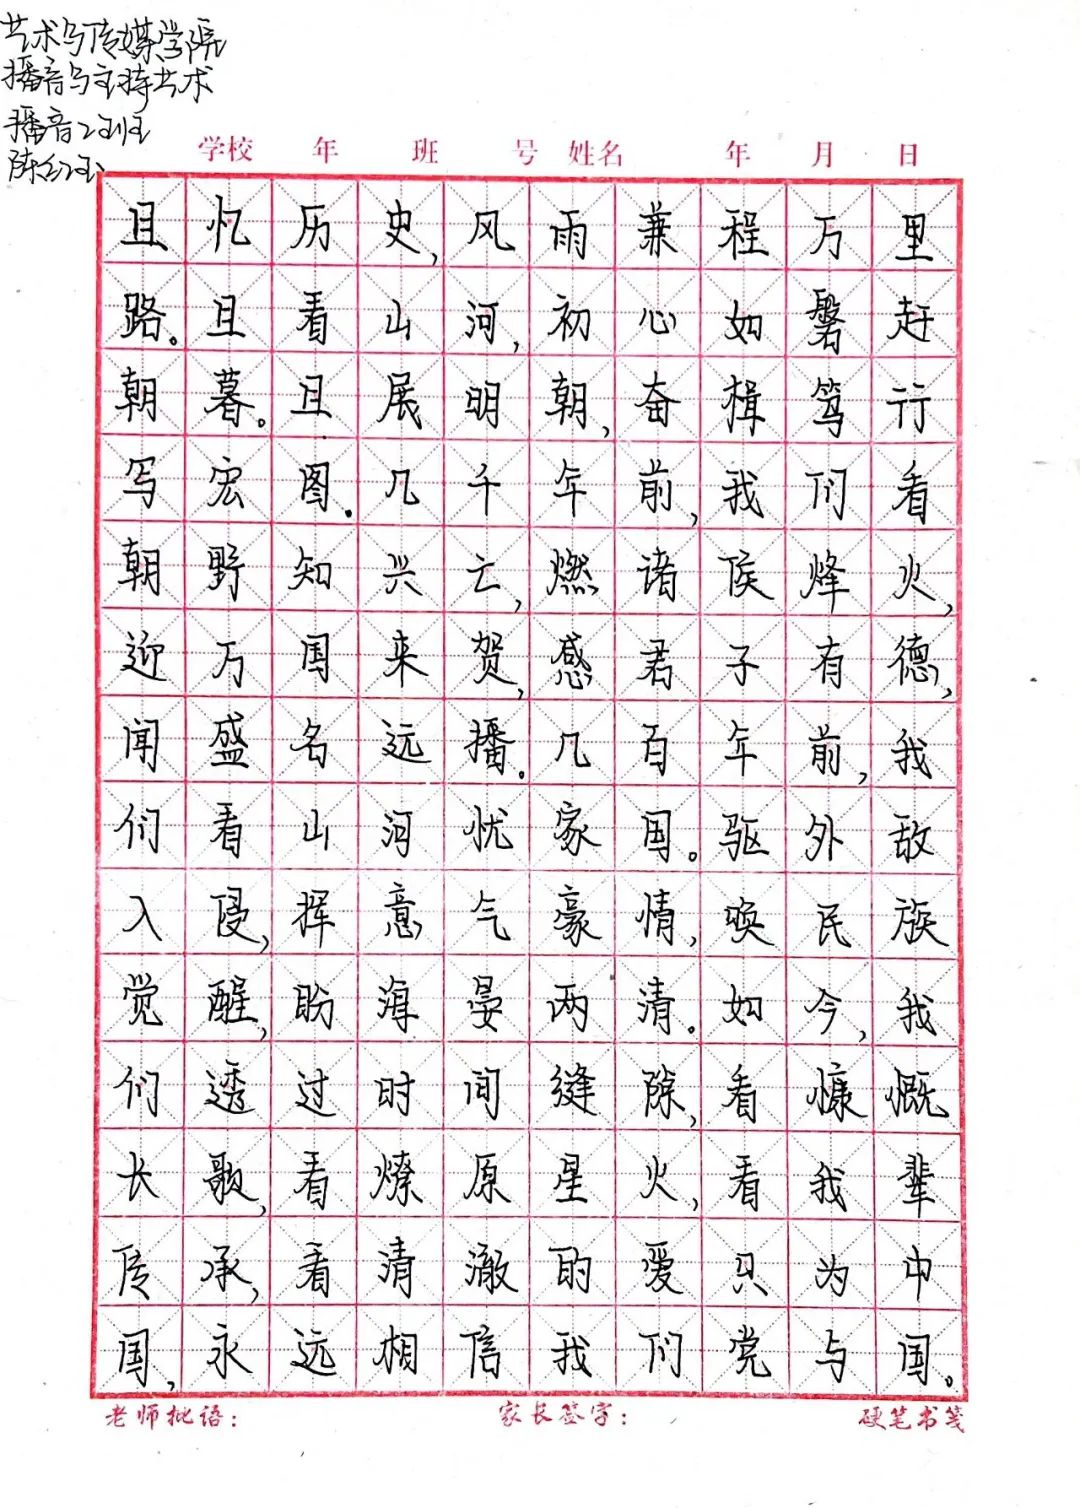 艺术与传媒学院
播音与主持艺术
播音2班
陈红玉
学校 年 班 号 姓名 年 月 日
且忆历史,风雨兼程万里
路。且看山河,初心如磐赶
朝暮。且展明朝,奋楫笃行
写宏图.几千年前,我们看
朝野知兴亡,燃诸侯烽火,
迎万国来贺,感君子有德,
闻盛名远播。几百年前,我
们看山河忧家国。驱外敌
入侵,挥意气豪情,唤民族
觉醒,盼海晏两清。如今,我
们透过时间缝隙,看慷慨
长歌,看燎原星火,看我辈
传承,看清澈的爱只为中
国,永远相信我们党与国。
老师批语: 家长签字: 硬笔书笺